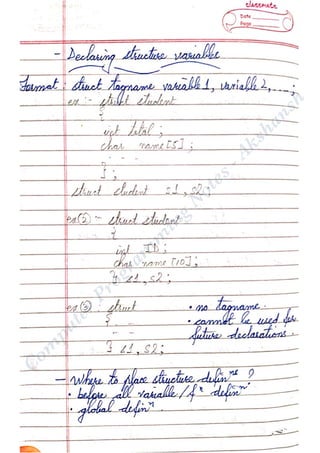 classmate
Date
Page
- Declaring structure variables
Format : struct tagname variable 1, variable 2, ....;
ex :- struct student
{
int total ;
char name[5] ;
- - -
} ;
struct student s1, s2 ;
ex② :- struct student
{
int ID ;
char name [10] ;
} s1, s2 ;
ex③ : struct • no tagname.
{ - - • cannot be used for
- - - future declarations.
} s1, s2 ;
- Where to place structure defin^ns ?
• before all variable / f^n defin^n
• global defin^n.
Computer Programming Notes - Akshansh